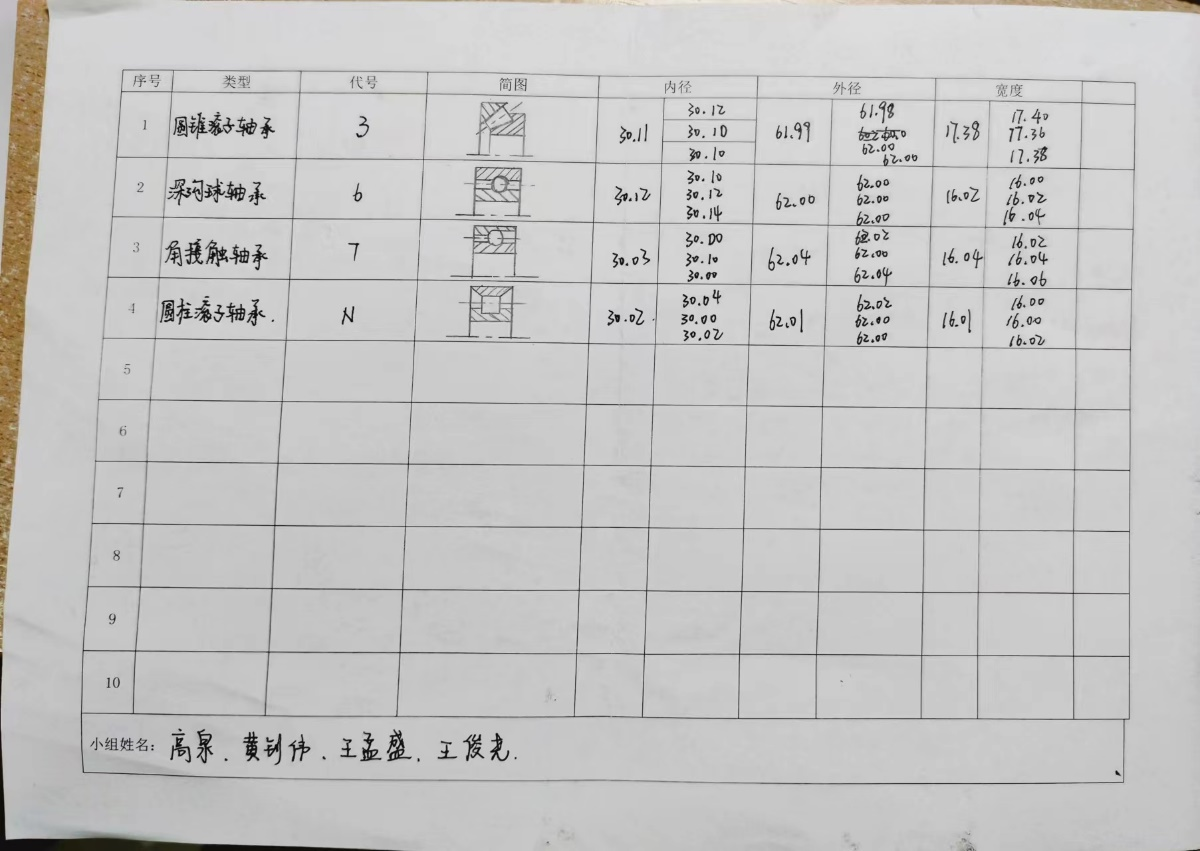 序号 类型 代号 简图 内径 外径 宽度
1 圆锥滚子轴承 3 30.11 30.12 30.10 30.10 61.99 61.98 62.00 62.00 17.38 17.40 17.36 17.38
2 深沟球轴承 6 30.12 30.10 30.12 30.14 62.00 62.00 62.00 62.00 16.02 16.00 16.02 16.04
3 角接触轴承 7 30.03 30.00 30.10 30.00 62.04 62.02 62.00 62.04 16.04 16.02 16.04 16.06
4 圆柱滚子轴承. N 30.02. 30.04 30.00 30.02 62.01 62.02 62.00 62.00 16.01 16.00 16.00 16.02
5
6
7
8
9
10
小组姓名: 高泉、黄钊伟、王孟盛、王俊尧.